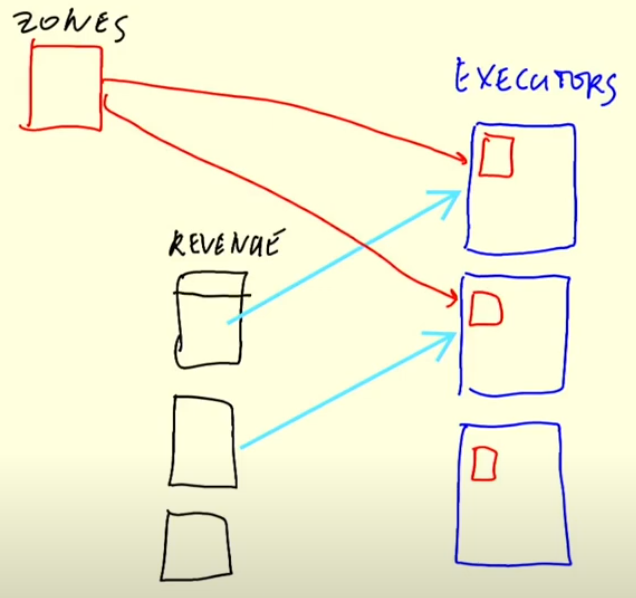 ZONES
EXECUTORS
REVENUE